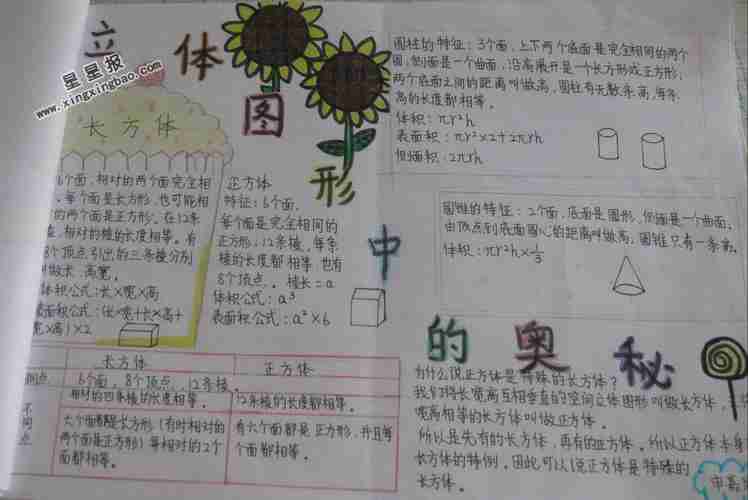 立体图形中的奥秘
星星报
www.xingxingbao.com
长方体
6个面,相对的两个面完全相
,每个面是长方形,也可能相
的两个面是正方形,在12条
,相对的棱的长度相等。有
8个顶点引出的三条棱分别
叫做长、高宽。
体积公式:长×宽×高
表面积公式:(长×宽+长×高+
宽×高)×2
正方体
特征:6个面,
每个面是完全相同的
正方形,12条棱,每条
棱的长度都相等 也有
8个顶点。棱长=a
体积公式:a³
表面积公式:a²×6
圆柱的特征:3个面,上下两个底面是完全相同的两个
圆,侧面是一个曲面,沿高展开是一个长方形或正方形;
两个底面之间的距离叫做高,圆柱有无数条高,每条
高的长度都相等。
体积:πr²h
表面积:πr²×2+2πrh
侧面积:2πrh
圆锥的特征:2个面,底面是圆形,侧面是一个曲面,
由顶点到底面圆心的距离叫做高,圆锥只有一条高。
体积:πr²h×1/3
长方体 正方体
相同点 6个面,8个顶点,12条棱。
不同点
相对的四条棱的长度相等。 12条棱的长度都相等。
六个面都是长方形(有时相对的
两个面是正方形)每相对的2个
面都相等。
有六个面都是正方形,并且每
个面都相等。
为什么说正方体是特殊的长方体?
我们将长宽高互相垂直的空间立体图形叫做长方体,
宽高相等的长方体叫做正方体。
所以是先有的长方体,再有的正方体。所以正方体本身
长方体的特例。因此可以说正方体是特殊的
长方体。